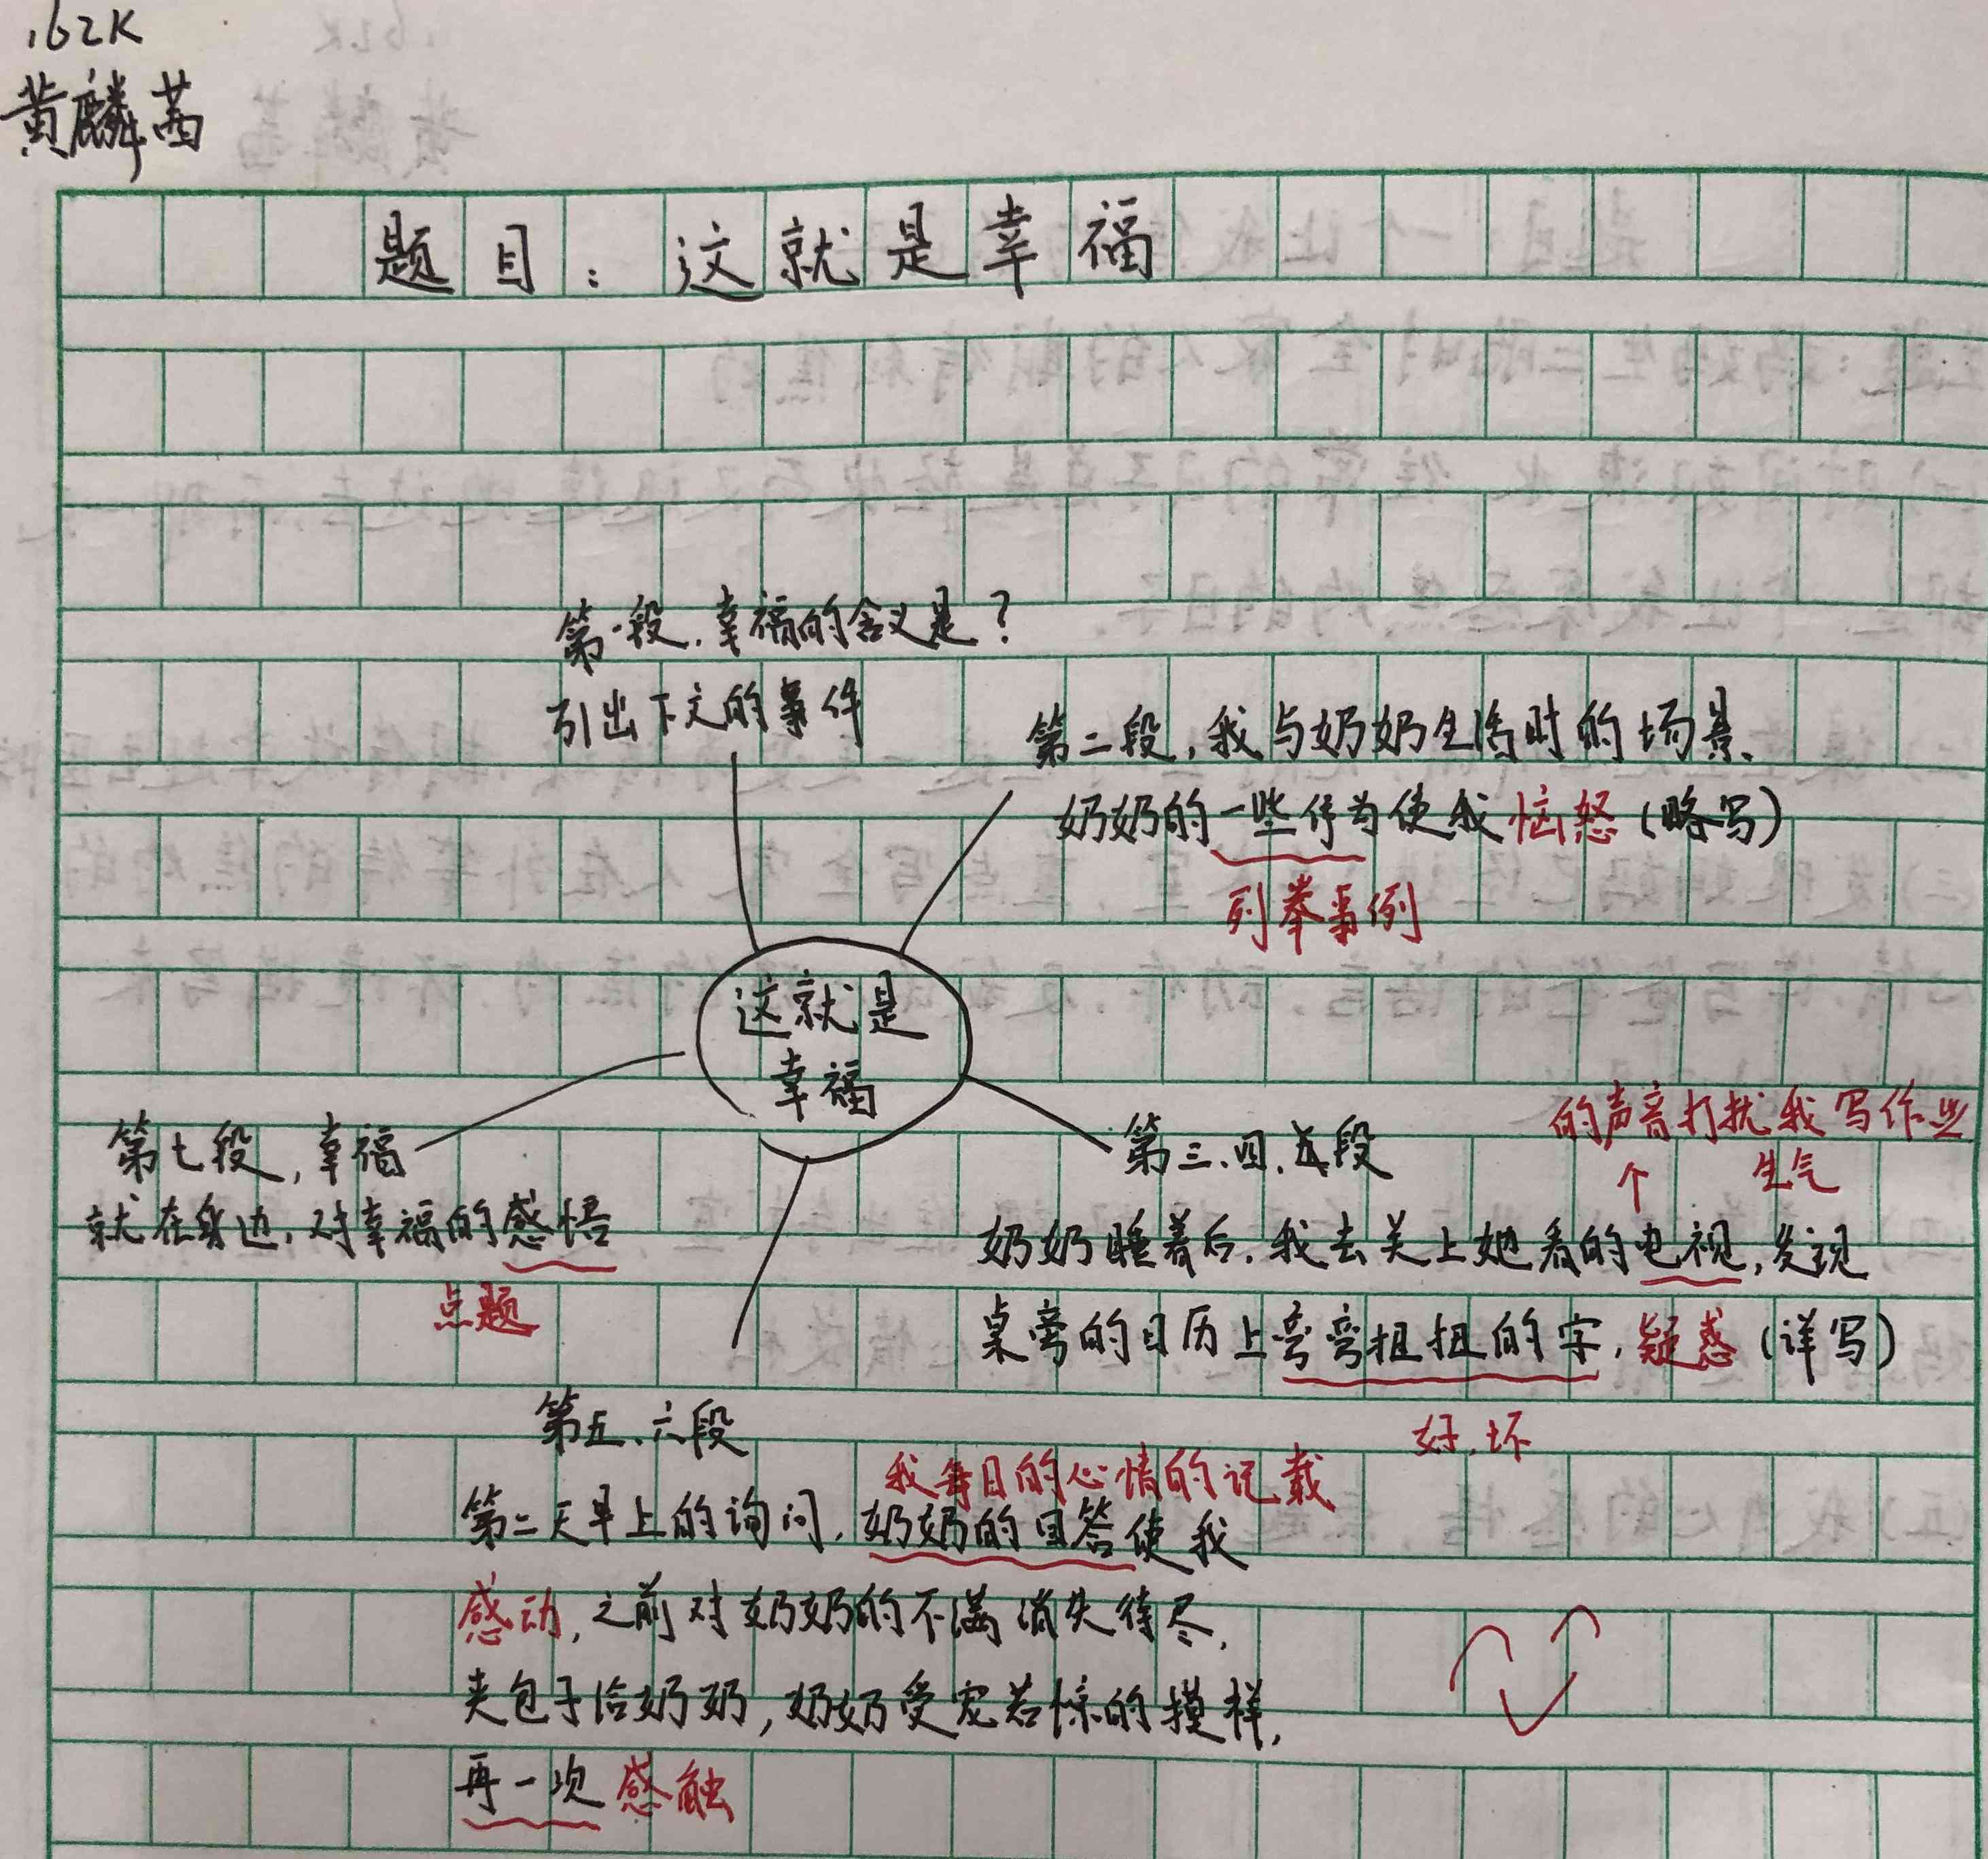 162K
黄麟茜
题目：这就是幸福
第一段，幸福的含义是？
引出下文的事件
第二段，我与奶奶生活时的场景、
奶奶的一些行为使我恼怒（略写）
列举事例
这就是
幸福
第三、四、五段
的声音打扰我写作业
生气
奶奶睡着后，我去关上她看的电视，发现
桌旁的日历上弯弯扭扭的字，疑惑（详写）
好、坏
第五、六段
我每日的心情的记载
第二天早上的询问，奶奶的回答使我
感动，之前对奶奶的不满消失待尽，
夹包子给奶奶，奶奶受宠若惊的摸样，
再一次感触
第七段，幸福
就在身边，对幸福的感悟
点题